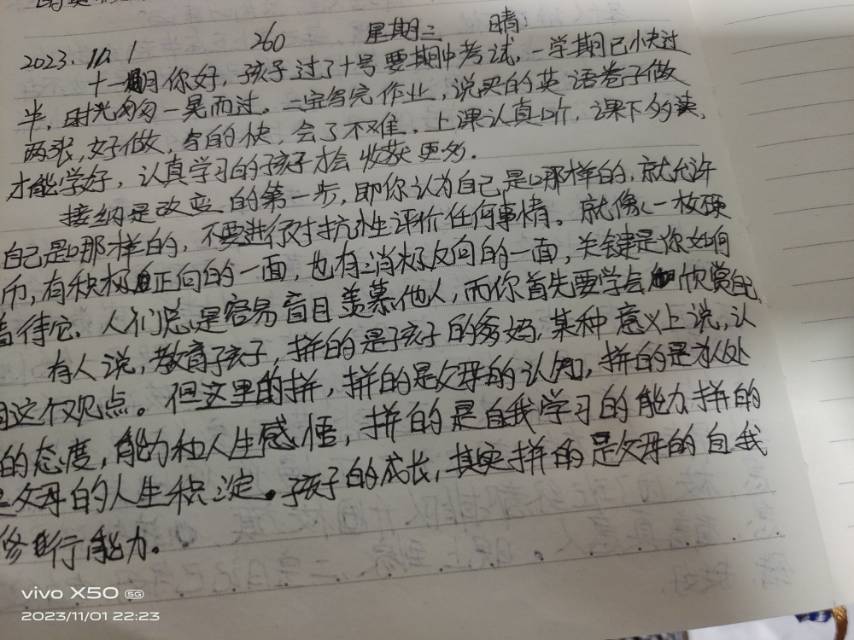 2023. 11. 1 260 星期三 晴
十一月你好，孩子过了十号要期中考试，一学期已快过
半，时光匆匆一晃而过。二宝写完作业，说买的英语卷子做
两张，好做，写的快，会了不难。上课认真听，课下多读，
才能学好，认真学习的孩子才会收获更多。
接纳是改变的第一步，即你认为自己是哪样的，就允许
自己是哪样的，不要进行对抗性评价任何事情。就像一枚硬
币，有积极正向的一面，也有消极反向的一面，关键是你如何
看待它。人们总是容易盲目羡慕他人，而你首先要学会欣赏自己
有人说，教育孩子，拼的是孩子的爹妈，某种意义上说，认
同这个观点。但这里的拼，拼的是父母的认知，拼的是为人处
的态度，能力和人生感悟，拼的是自我学习的能力拼的
是父母的人生积淀。孩子的成长，其实拼的是父母的自我
修行能力。
vivo X50 5G
2023/11/01 22:23